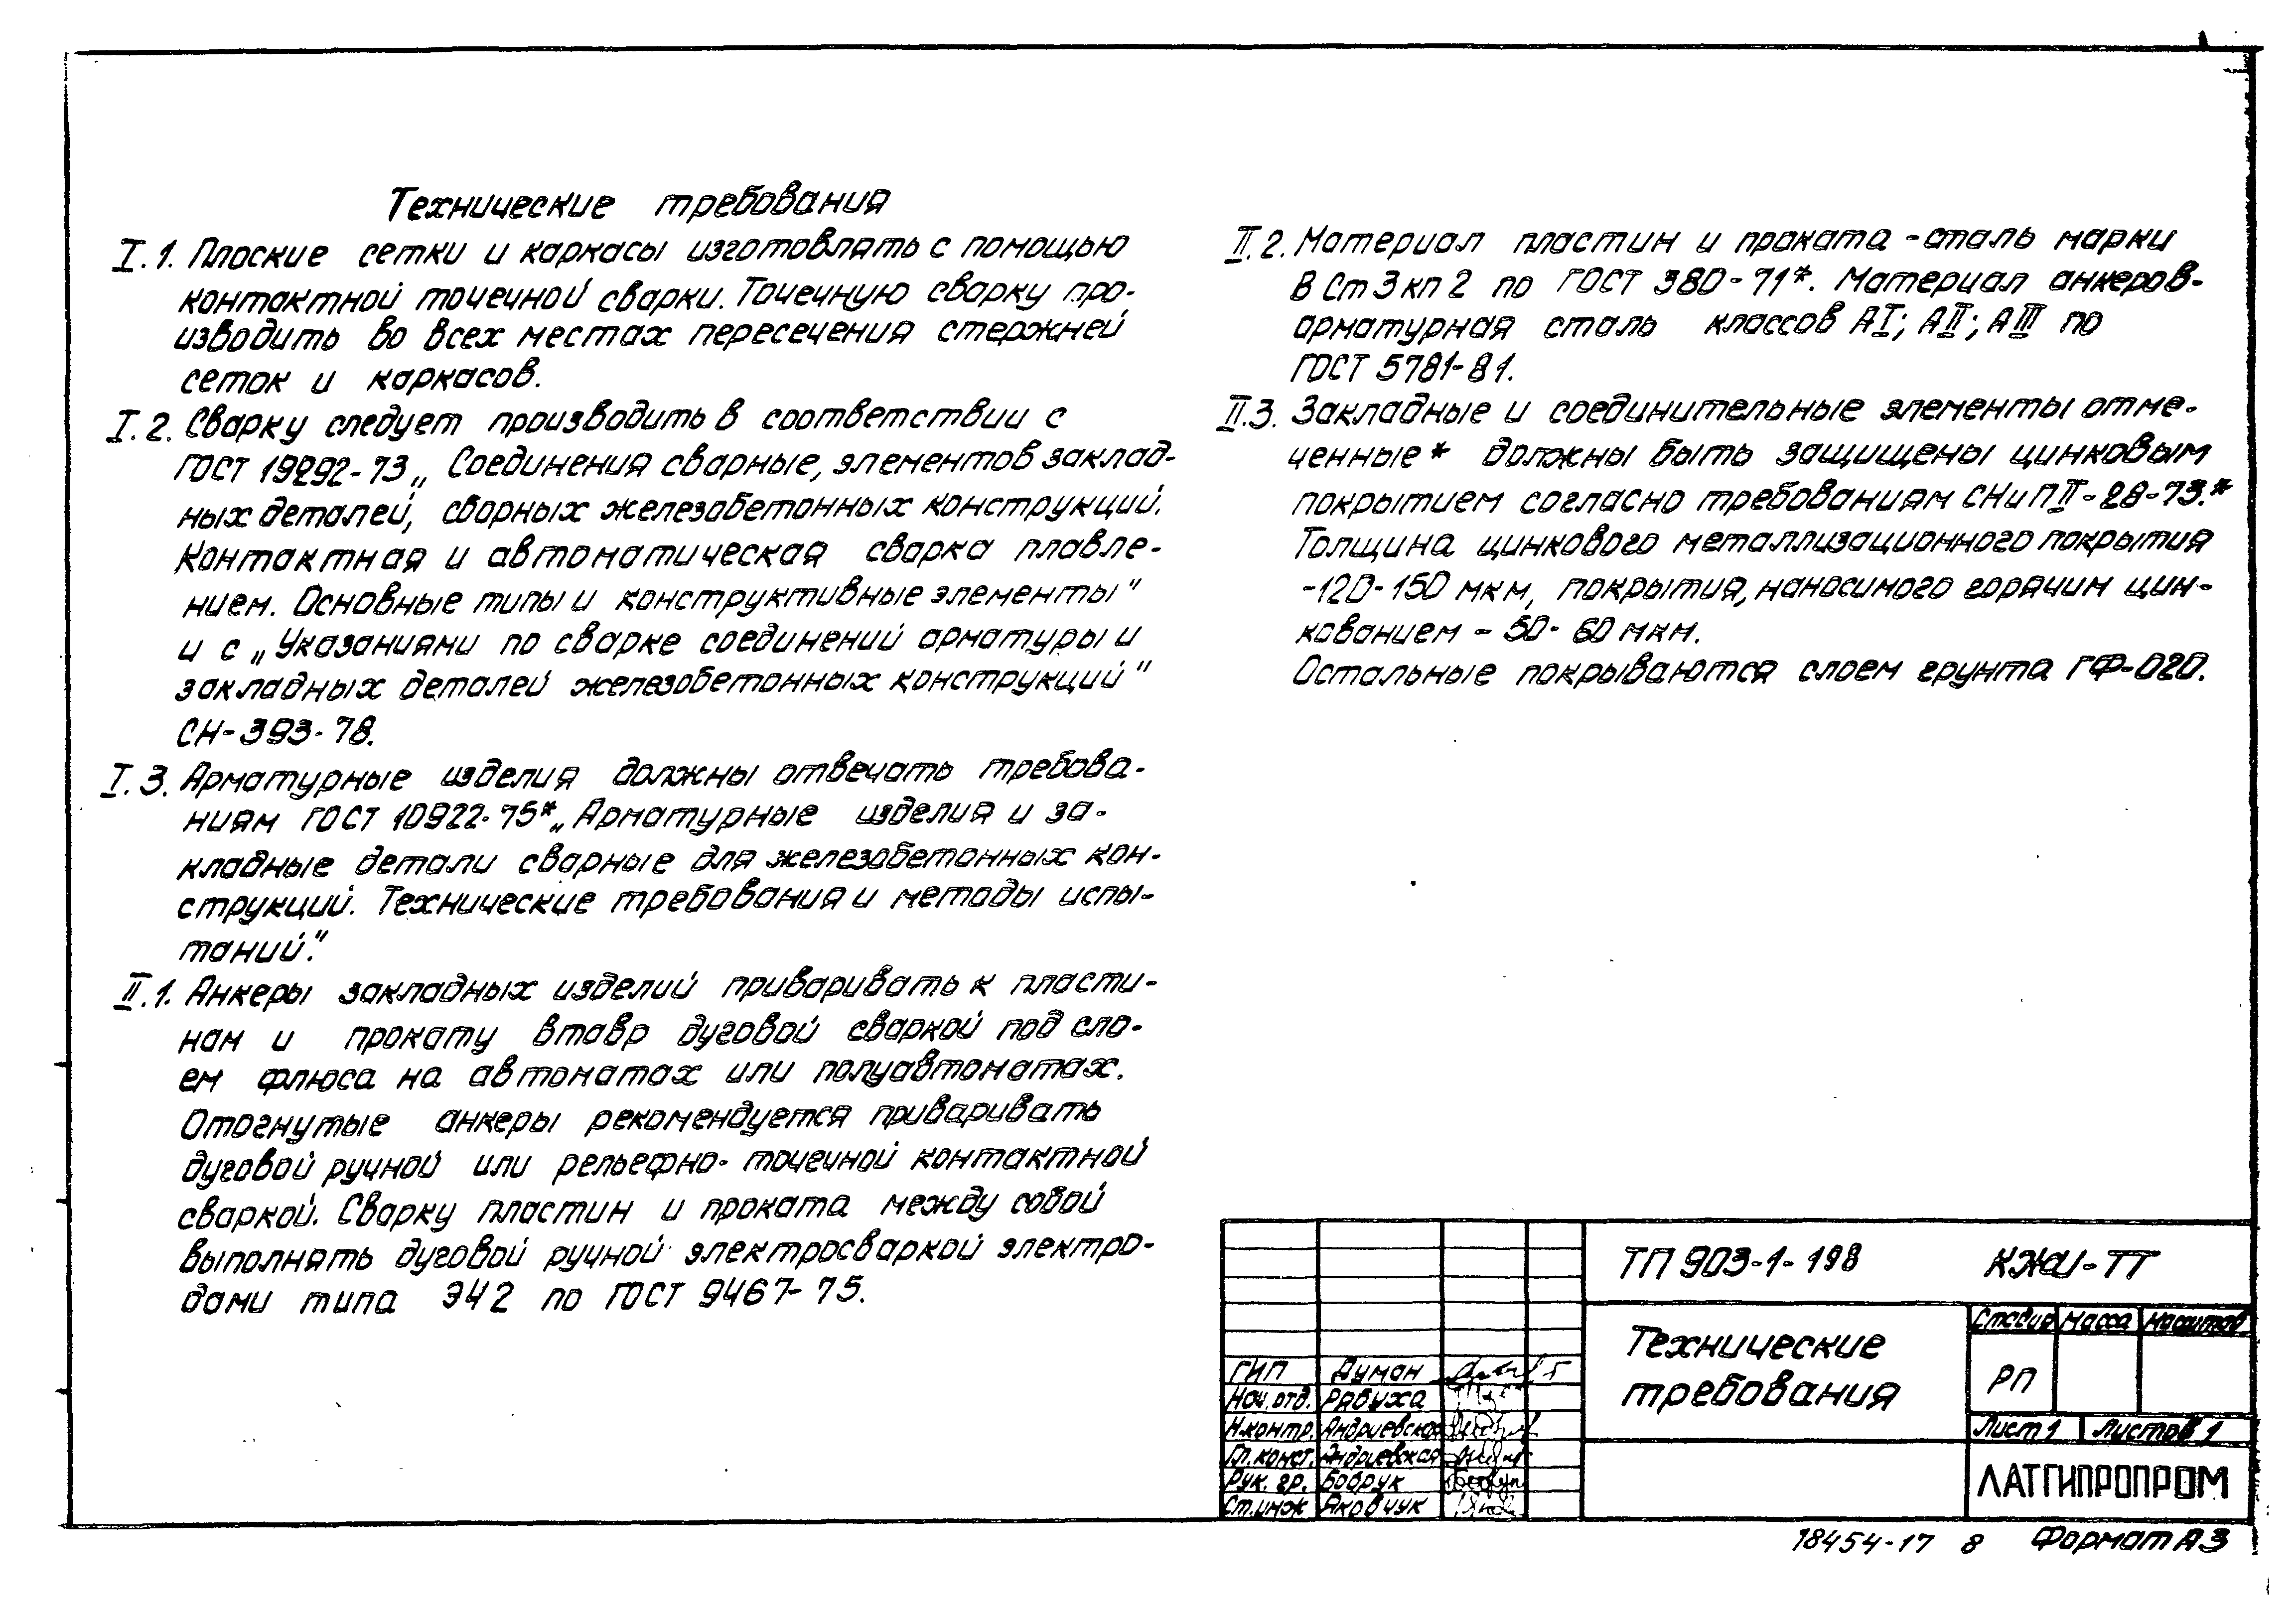 Технические требования
I.1. Плоские сетки и каркасы изготовлять с помощью
контактной точечной сварки. Точечную сварку про-
изводить во всех местах пересечения стержней
сеток и каркасов.
I.2. Сварку следует производить в соответствии с
ГОСТ 19292-73 „Соединения сварные, элементов заклад-
ных деталей, сборных железобетонных конструкций.
Контактная и автоматическая сварка плавле-
нием. Основные типы и конструктивные элементы"
и с „Указаниями по сварке соединений арматуры и
закладных деталей железобетонных конструкций"
СН-393-78.
I.3. Арматурные изделия должны отвечать требова-
ниям ГОСТ 10922-75* „Арматурные изделия и за-
кладные детали сварные для железобетонных кон-
струкций. Технические требования и методы испы-
таний."
II.1. Анкеры закладных изделий приваривать к пласти-
нам и прокату втавр дуговой сваркой под сло-
ем флюса на автоматах или полуавтоматах.
Отогнутые анкеры рекомендуется приваривать
дуговой ручной или рельефно-точечной контактной
сваркой. Сварку пластин и проката между собой
выполнять дуговой ручной электросваркой электро-
дами типа Э42 по ГОСТ 9467-75.
II.2. Материал пластин и проката - сталь марки
ВСт3кп2 по ГОСТ 380-71*. Материал анкеров-
арматурная сталь классов АI; АII; АIII по
ГОСТ 5781-81.
II.3. Закладные и соединительные элементы отме-
ченные* должны быть защищены цинковым
покрытием согласно требованиям СНиП II-28-73.*
Толщина цинкового металлизационного покрытия
-120-150 мкм, покрытия, наносимого горячим цин-
кованием - 50-60 мкм.
Остальные покрываются слоем грунта ГФ-020.
ТП 903-1-198 КЖИ-ТТ
Технические
требования
Стадия Масса Масштаб
РП
Лист 1 Листов 1
ЛАТГИПРОПРОМ
ГИП Думан
Нач. отд. Рябуха
Н.контр. Андриевская
Гл. конст. Андриевская
Рук. гр. Бобрук
Ст.инж Яковчук
18454-17 8 Формат А3